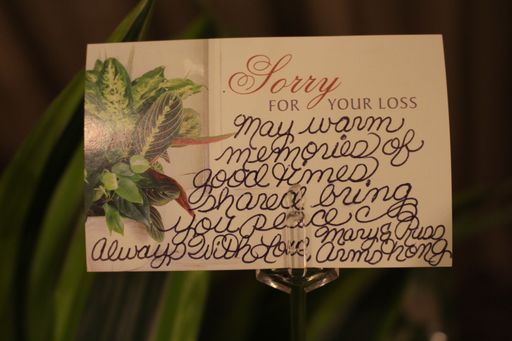 Sorry
FOR YOUR LOSS
May warm
memories of
good times
shared bring
you peace
Mary & Russ
Always With Love, Armstrong